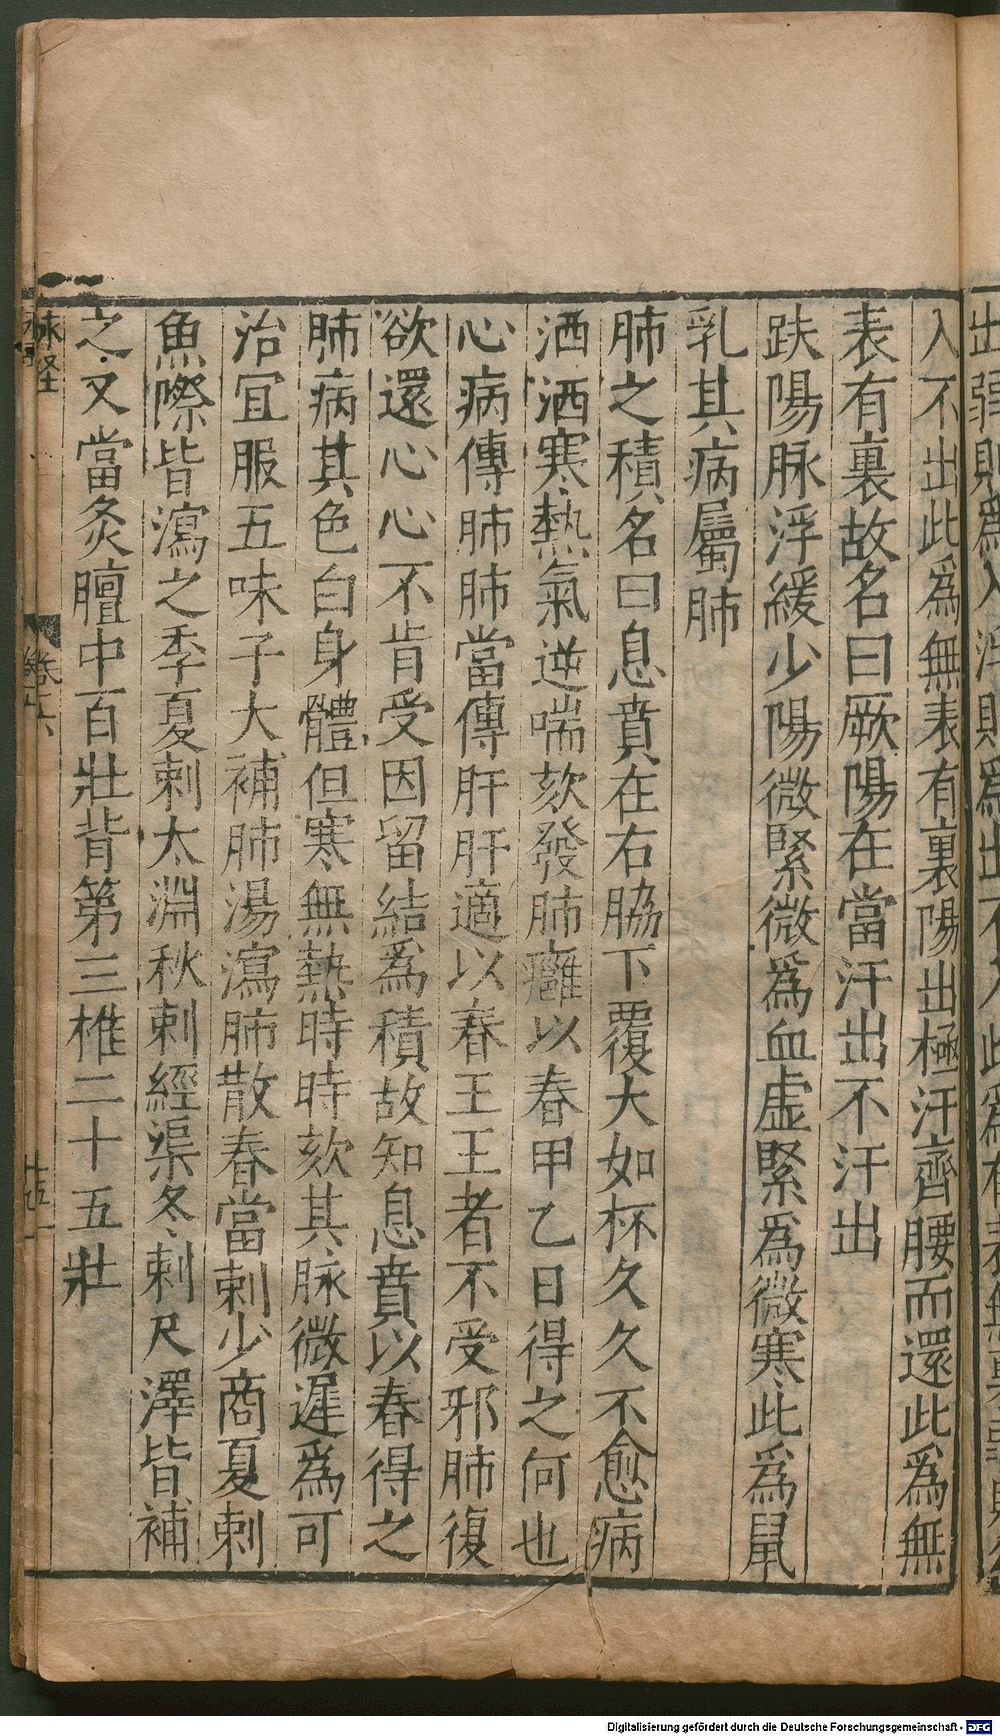 入不出此為無表有裏陽出極汗齊腰而還此為無
表有裏故名曰厥陽在當汗出不汗出
趺陽脉浮緩少陽微緊微為血虚緊為微寒此為鼠
乳其病屬肺
肺之積名曰息賁在右脇下覆大如杯久久不愈病
洒洒寒熱氣逆喘欬發肺癰以春甲乙日得之何也
心病傳肺肺當傳肝肝適以春王王者不受邪肺復
欲還心心不肯受因留結為積故知息賁以春得之
肺病其色白身體但寒無熱時時欬其脉微遲為可
治宜服五味子大補肺湯瀉肺散春當刺少商夏刺
魚際皆瀉之季夏刺太淵秋刺經渠冬刺尺澤皆補
之又當灸膻中百壯背第三椎二十五壯
脉經
卷六
Digitalisierung gefördert durch die Deutsche Forschungsgemeinschaft - DFG